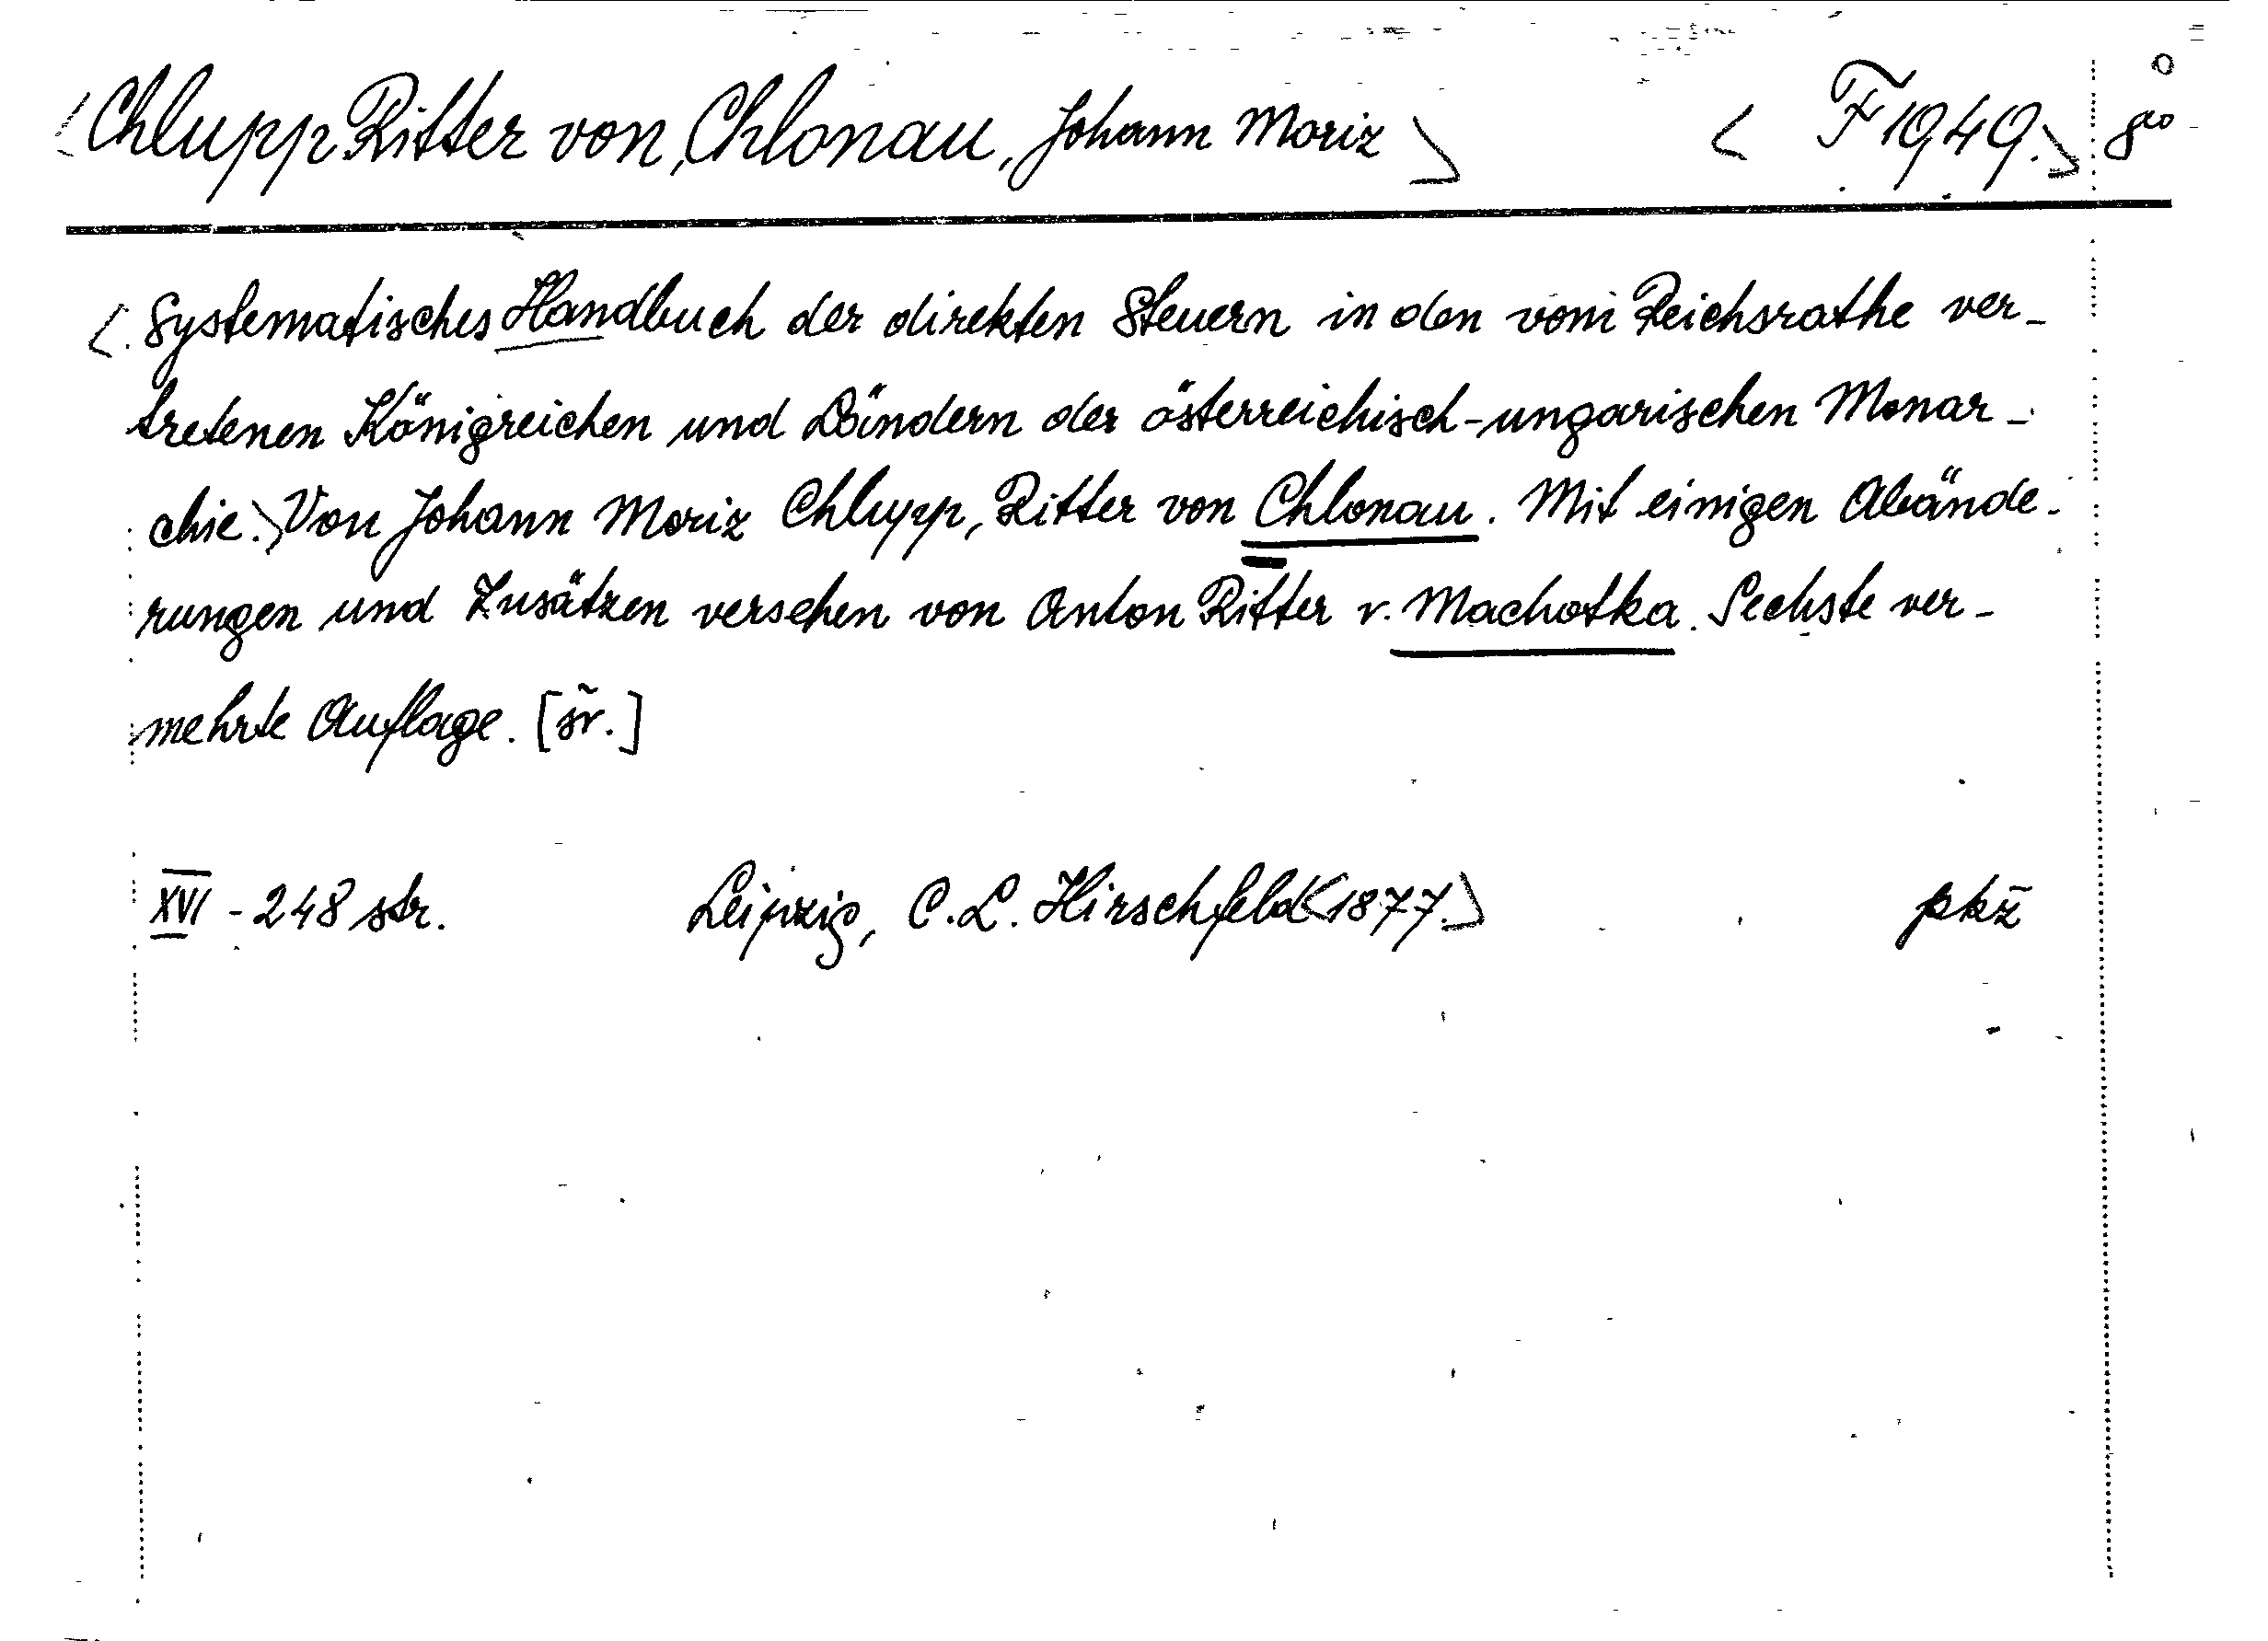 <Chlupp Ritter von Chlonau, Johann Moriz> <F 1949.> 8°
<Systematisches Handbuch der direkten Steuern in den vom Reichsrathe ver-
tretenen Königreichen und Ländern der österreichisch-ungarischen Monar-
chie.> Von Johann Moriz Chlupp, Ritter von Chlonau. Mit einigen Abände-
rungen und Zusätzen versehen von Anton Ritter v. Machotka. Sechste ver-
mehrte Auflage. [šv.]
XVI - 248 str. Leipzig, C. L. Hirschfeld <1877.> pkž